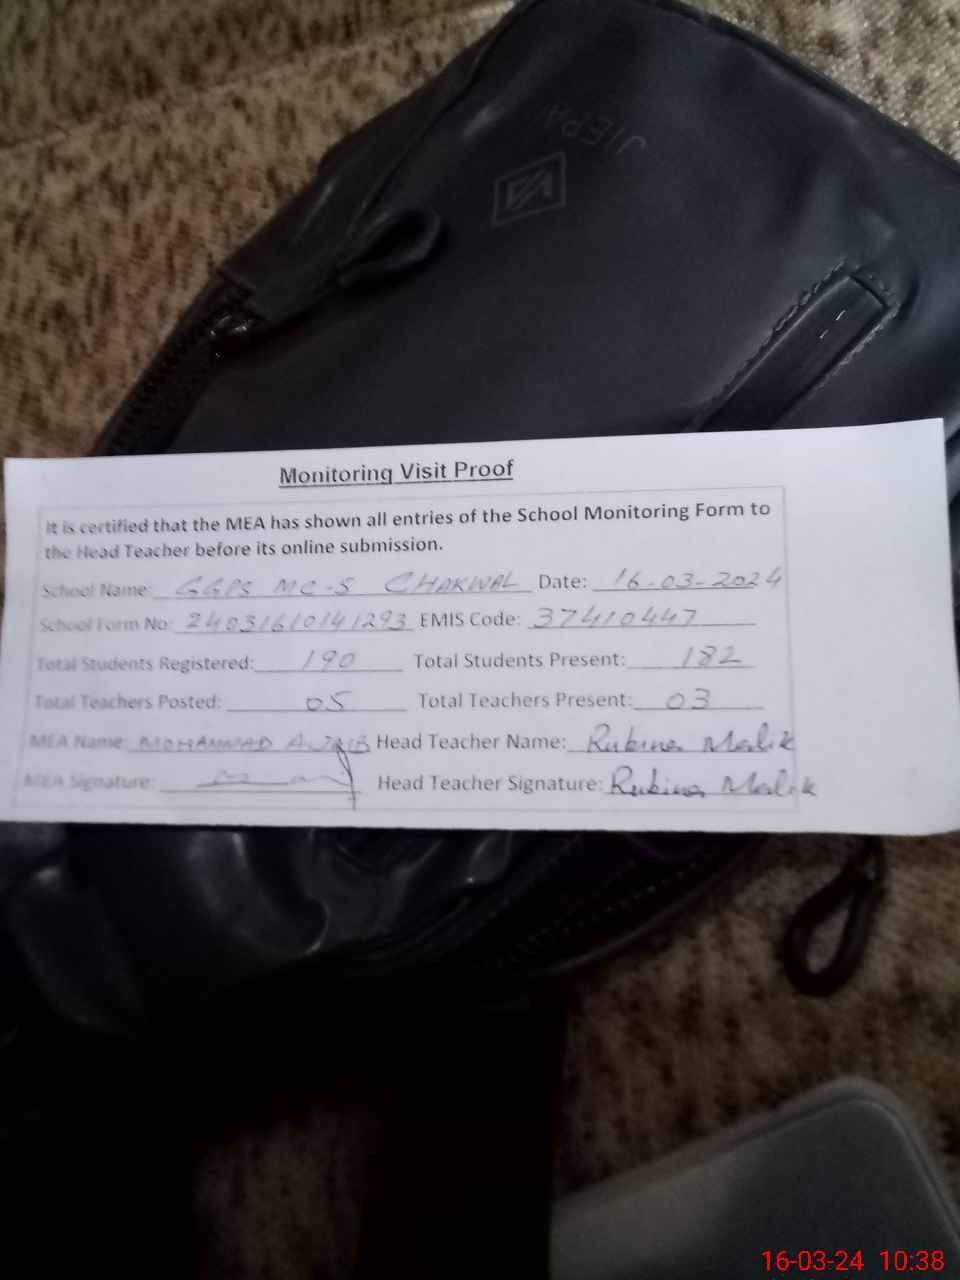 JIEPAI
Monitoring Visit Proof
It is certified that the MEA has shown all entries of the School Monitoring Form to
the Head Teacher before its online submission.
School Name: GGPS MC-S CHAKWAL Date: 16-03-2024
School Form No: 24031610141293 EMIS Code: 37410447
Total Students Registered: 190 Total Students Present: 182
Total Teachers Posted: 05 Total Teachers Present: 03
MEA Name: MOHAMMAD Head Teacher Name: Rubina Malik
MEA Signature: Head Teacher Signature: Rubina Malik
16-03-24 10:38